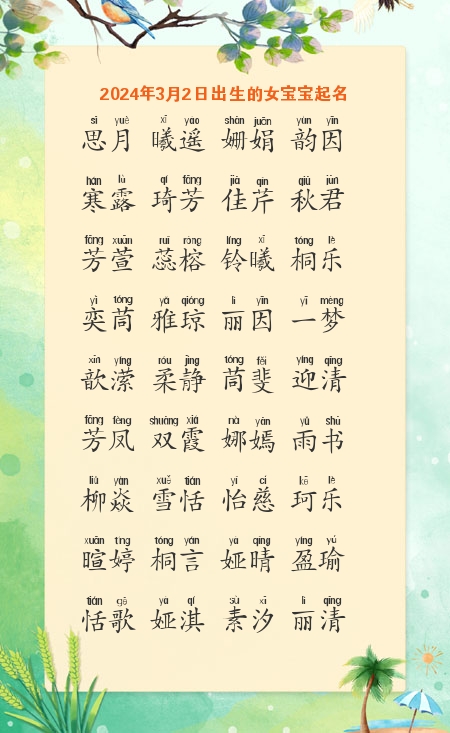 2024年3月2日出生的女宝宝起名
sī yuè xī yáo shān juān yùn yīn
思月 曦遥 姗娟 韵因
hán lù qí fāng jiā qín qiū jūn
寒露 琦芳 佳芹 秋君
fāng xuān ruǐ róng líng xī tóng lè
芳萱 蕊榕 铃曦 桐乐
yì tóng yǎ qióng lì yīn yī mèng
奕茼 雅琼 丽因 一梦
xīn yíng róu jìng tóng fěi yíng qīng
歆潆 柔静 茼斐 迎清
fāng fèng shuāng xiá nà yān yǔ shū
芳凤 双霞 娜嫣 雨书
liǔ yàn xuě tián yí cí kē lè
柳焱 雪恬 怡慈 珂乐
xuān tíng tóng yán yà qíng yíng yú
暄婷 桐言 娅晴 盈瑜
tián gē yà qí sù xī lì qīng
恬歌 娅淇 素汐 丽清